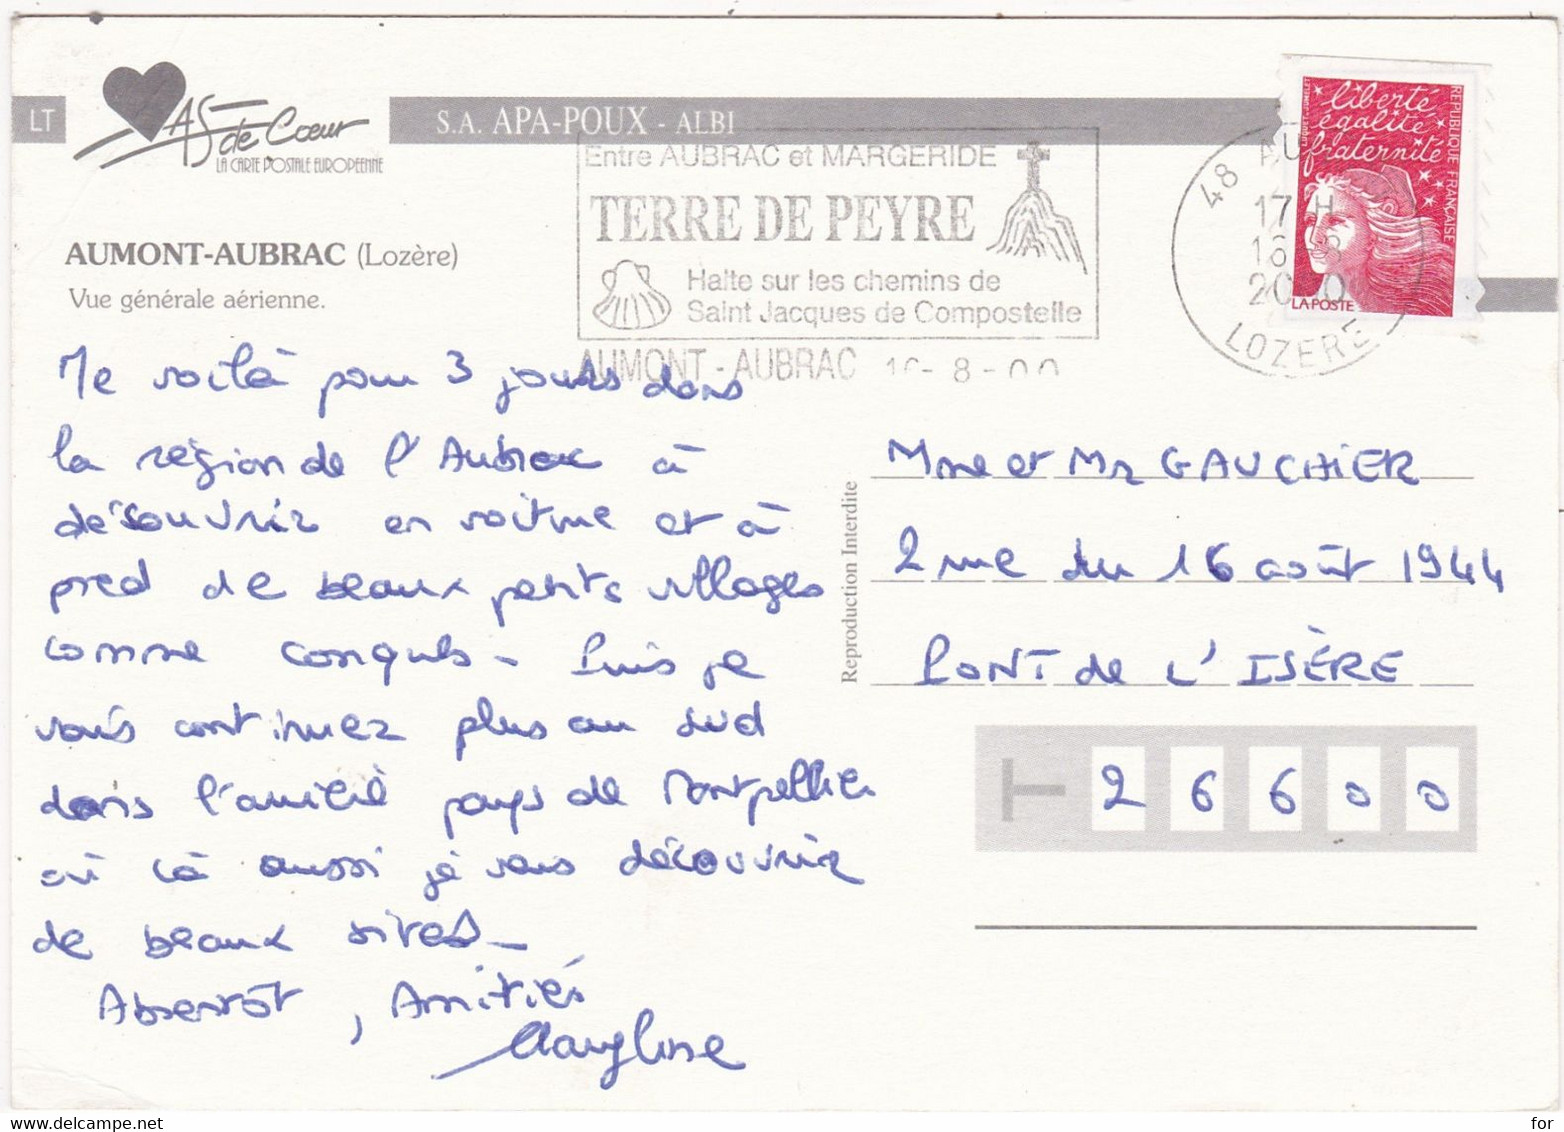 LT
AS de Cœur
LA CARTE POSTALE EUROPEENNE
S.A. APA-POUX - ALBI
AUMONT-AUBRAC (Lozère)
Vue générale aérienne.
Entre AUBRAC et MARGERIDE
TERRE DE PEYRE
Halte sur les chemins de
Saint Jacques de Compostelle
AUMONT - AUBRAC 16-8-00
48 AU
17 H
16 8
2000
LOZERE
liberté
égalité
fraternité
REPUBLIQUE FRANÇAISE
LA POSTE
Me voilà pour 3 jours dans
la région de l'Aubrac à
découvrir en voiture et à
pied de beaux petits villages
comme conques - Puis je
vais continuer plus au sud
dans l'amitié pays de Montpellier
où là aussi je vais découvrir
de beaux sites -
A bientôt, Amitiés
Reproduction Interdite
Mme et Mr GAUCHIER
2 rue du 16 août 1944
PONT de L'ISÈRE
26600
delcampe.net
for